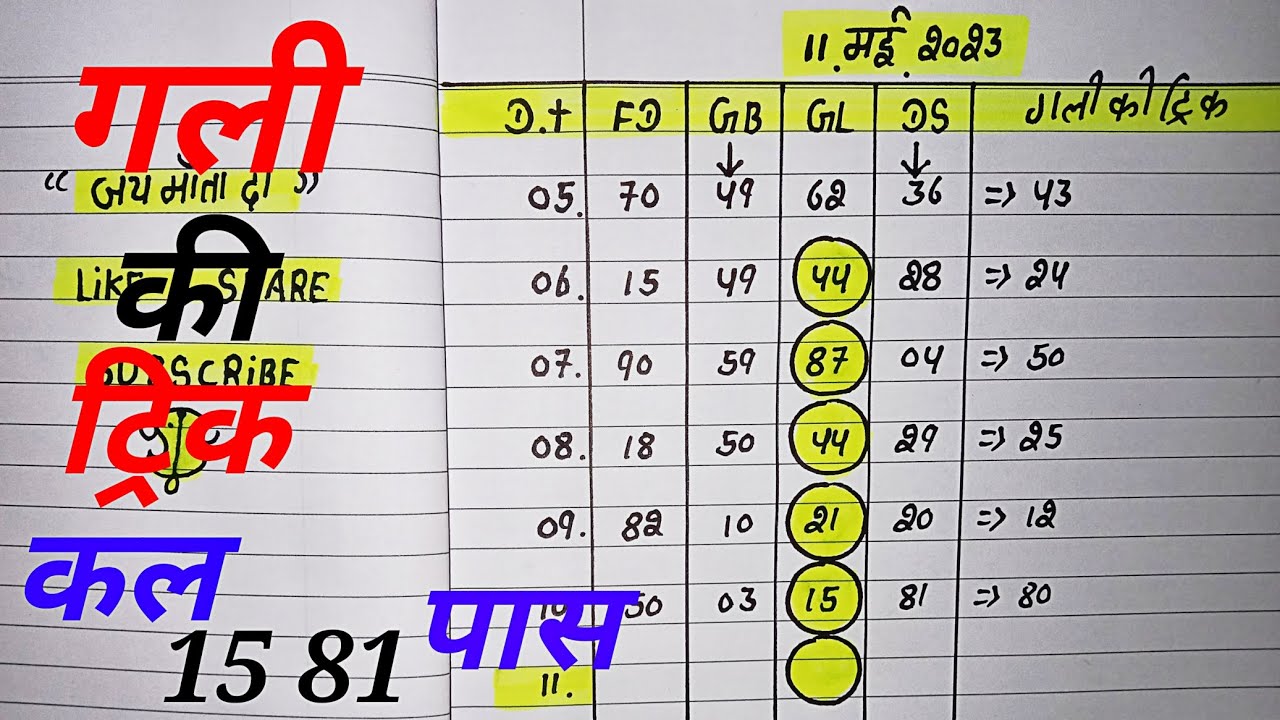 गली
की
ट्रिक
कल
15 81
पास
"जय माँता दी"
LiKE SHARE
SUBSCRiBE
11.मई.2023
D.t FD GB GL DS गली की ट्रिक
05. 70 49 62 36 => 43
06. 15 49 44 28 => 24
07. 90 59 87 04 => 50
08. 18 50 44 29 => 25
09. 82 10 21 20 => 12
10. 50 03 15 81 => 80
11.